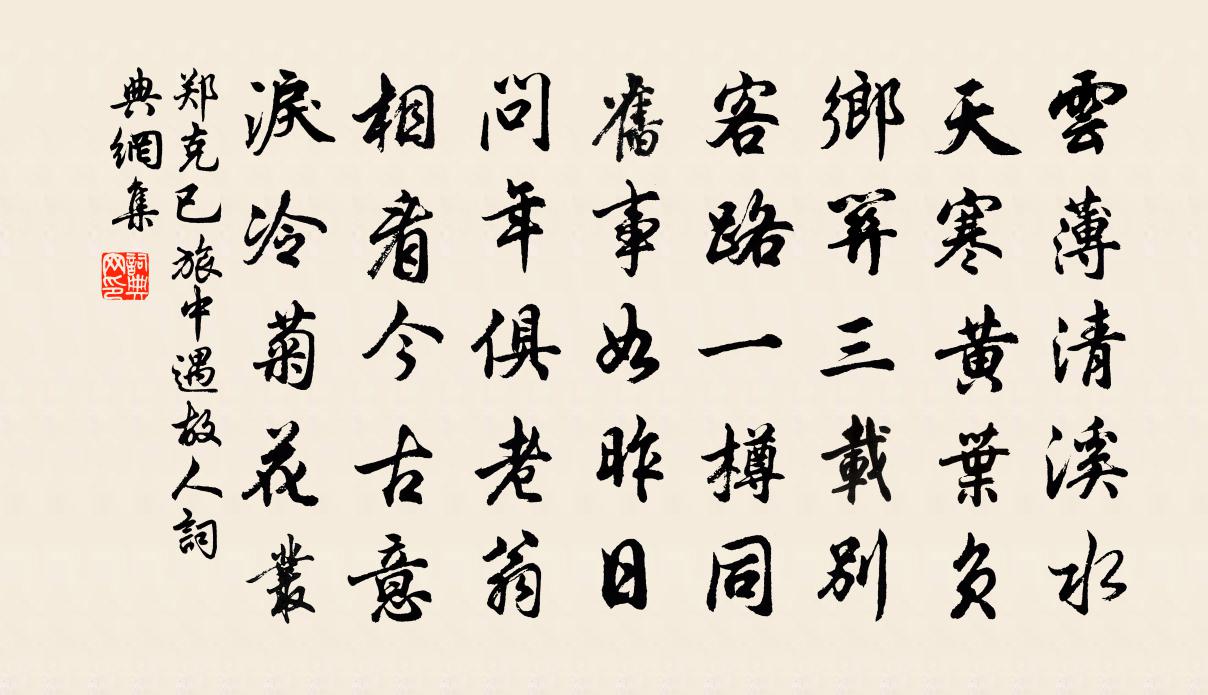 雲薄清溪水
天寒黃葉風
鄉關三載別
客路一樽同
舊事如昨日
問年俱老翁
相看今古意
淚冷菊花叢
郑克已旅中遇故人詞
典網集
詞典
网印